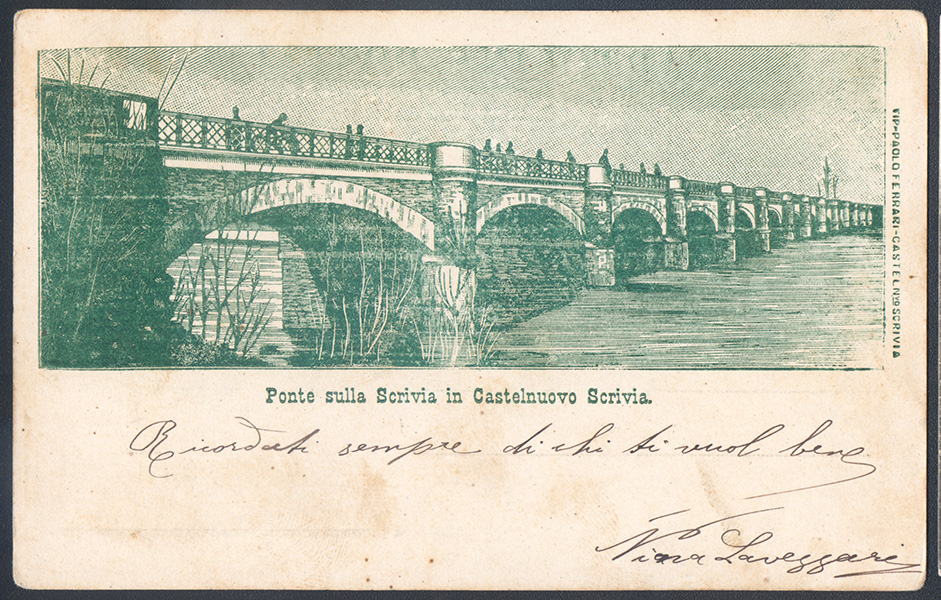 Ponte sulla Scrivia in Castelnuovo Scrivia.
Ricordati sempre di chi ti vuol bene
Nina Laveggari
TIP-PAOLO FERRARI-CASTELNVO SCRIVIA